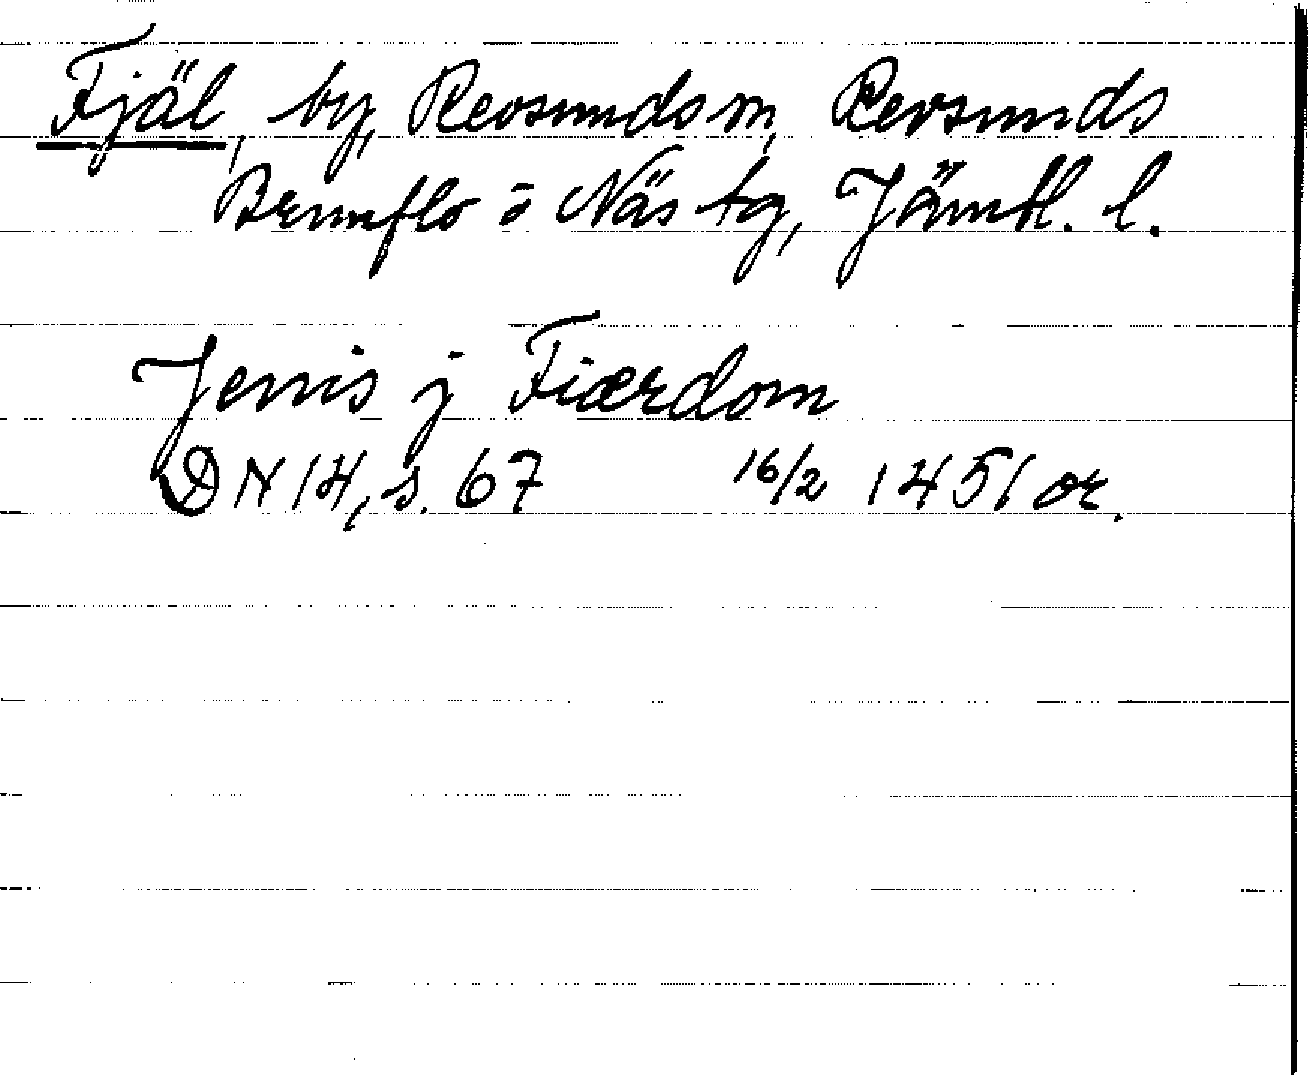 Fjäl, by, Revsunds sn, Revsunds
Brunflo o Näs tg, Jämtl. l.
Jenis j Fiærdom
DN 14, s. 67 16/2 1451 or.